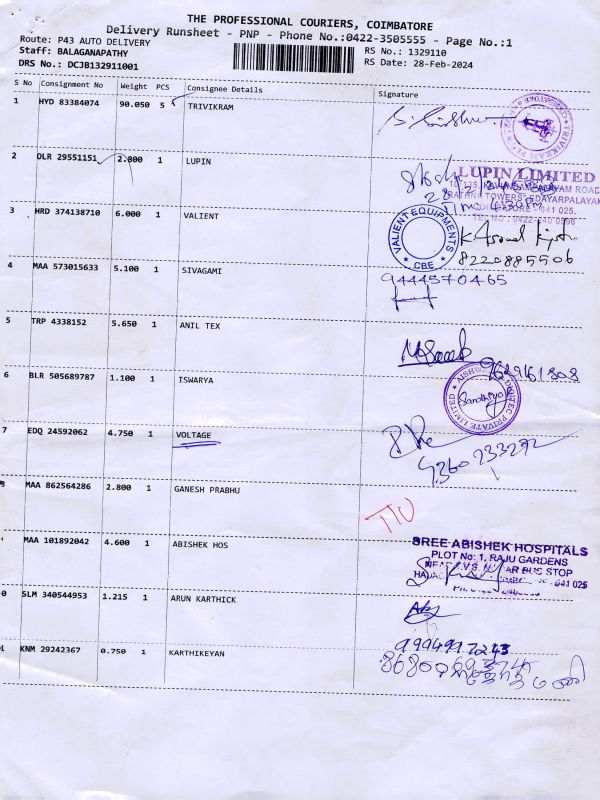 THE PROFESSIONAL COURIERS, COIMBATORE
Delivery Runsheet - PNP - Phone No.:0422-3505555 - Page No.:1
Route: P43 AUTO DELIVERY
Staff: BALAGANAPATHY
DRS No.: DCJB132911001
RS No.: 1329110
RS Date: 28-Feb-2024
S No Consignment No Weight PCS Consignee Details Signature
1 HYD 83384074 90.050 5 TRIVIKRAM
2 OLR 29551151 2.800 1 LUPIN
LUPIN LIMITED
RATHNA TOWERS
641 025.
3 HRD 374138710 6.000 1 VALIENT
VALIENT EQUIPMENTS
CBE
8220885506
4 MAA 573015633 5.100 1 SIVAGAMI
9444570465
5 TRP 4338152 5.650 1 ANIL TEX
6 BLR 505689787 1.100 1 ISWARYA
PRIVATE LIMITED
7 EDQ 24592062 4.750 1 VOLTAGE
9360233292
MAA 862564286 2.800 1 GANESH PRABHU
MAA 101892042 4.600 1 ABISHEK HOS
SREE ABISHEK HOSPITALS
PLOT No: 1, RAJU GARDENS
BUS STOP
641 025
0 SLM 340544953 1.215 1 ARUN KARTHICK
9994997243
KNM 29242367 0.750 1 KARTHIKEYAN